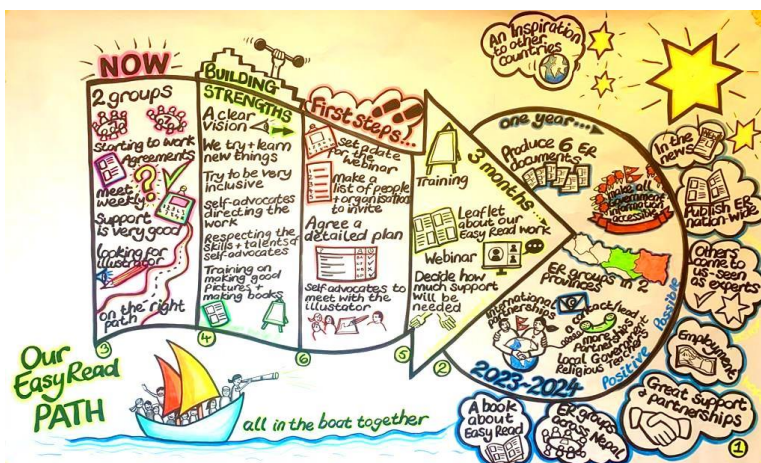 NOW
2 groups
starting to work
Agreements
meet
weekly
Support
is very good
looking for
illustrator
on the right
path
3
BUILDING
STRENGTHS
A clear
vision
We try + learn
new things
Try to be very
inclusive
self-advocates
directing the
work
Respecting the
skills + talents of
self-advocates
Training on
making good
pictures +
making books
4
First steps...
set a date
for the
webinar
make a
list of people
+ organisations
to invite
Agree a
detailed plan
self advocates to
meet with the
illustator
6
3 months....
Training
Leaflet
about our
Easy Read work
Webinar
Decide how
much support
will be
needed
5
2
one year...
Produce 6 ER
documents
make all
Government
information
accessible
ER groups in 2
Provinces
International
partnerships
a contact/lead
more
Partnerships
Local Government
Religious Teacher
2023-2024
Positive Possible
An Inspiration
to other
countries
In the
news
Publish ER
nation wide
Others
come to
us - seen
as experts
Employment
Great support
+ partnerships
1
ER groups
across Nepal
A book
about
Easy Read
Our
Easy Read
PATH
all in the boat together